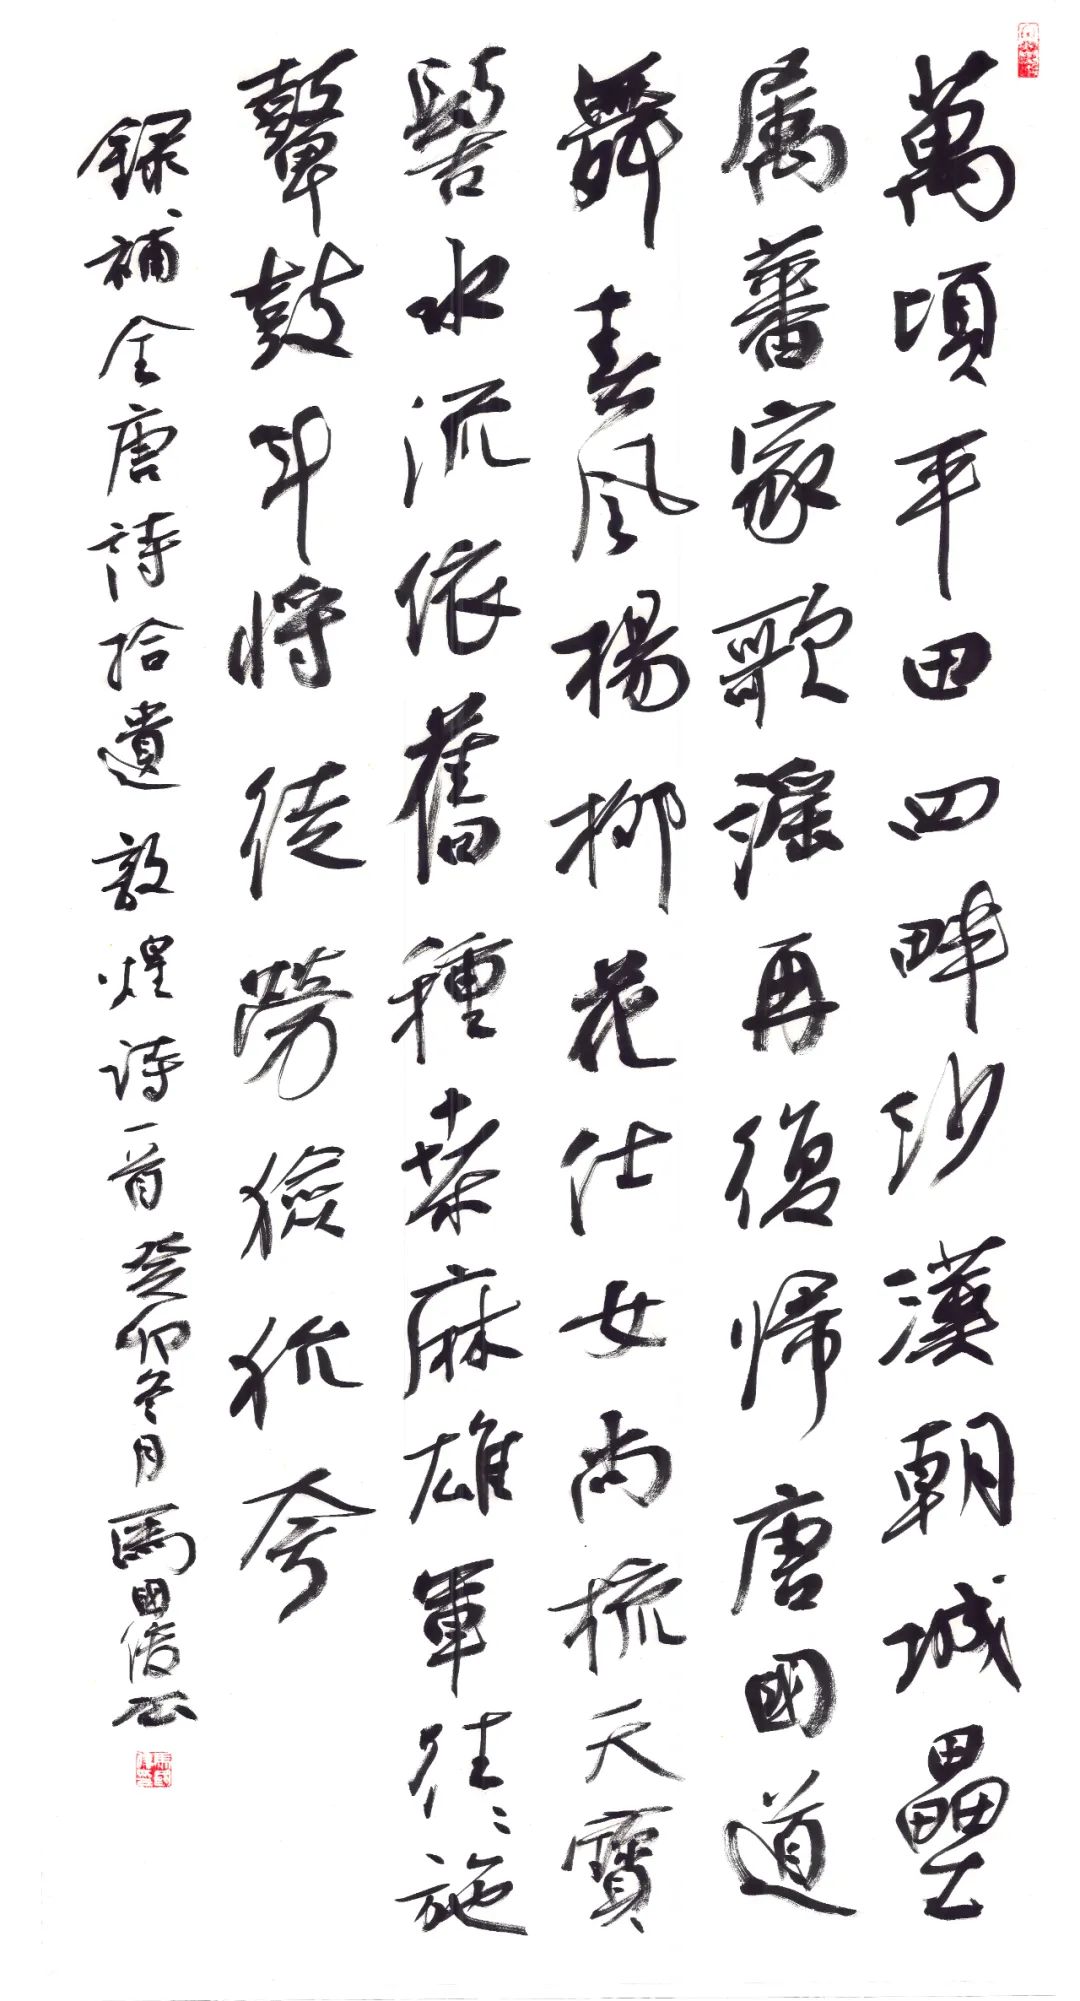 萬頃平田四畔沙漢朝城壘
属蕃家歌謡再復歸唐國道
舞春風楊柳花仕女尚梳天寶
髻水流依舊種桒麻雄軍往往施
鼙鼓斗将徒勞獫狁夸
録補全唐詩拾遺敦煌詩一首癸卯冬月馬國俊书